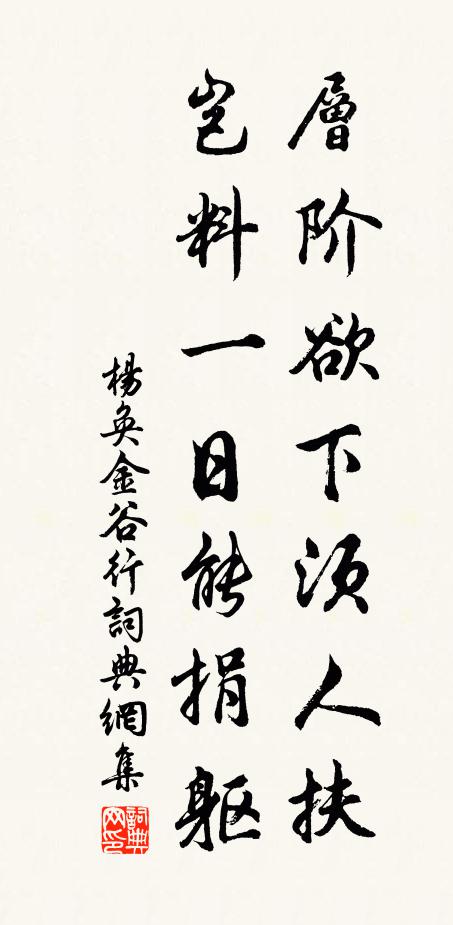 層阶欲下须人扶
岂料一日能捐躯
楊奐金谷行詞典網集
詞典网印